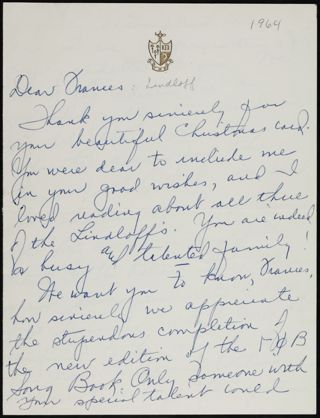 1964
Dear Frances: Lindloff
Thank you sincerely for
your beautiful Christmas card.
You were dear to include me
in your good wishes, and I
loved reading about all three
of the Lindloffs. You are indeed
a busy and talented family!
We want you to know, Frances,
how sincerely we appreciate
the stupendous completion of
the new edition of the
Song Book. Only someone with
your special talent could